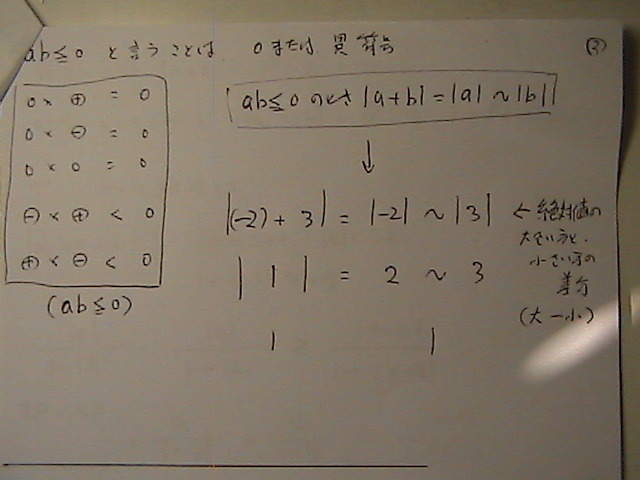 ab≦0 と言うことは 0または 異符号
②
0 × ⊕ = 0
0 × ⊖ = 0
0 × 0 = 0
⊖ × ⊕ < 0
⊕ × ⊖ < 0
(ab≦0)
ab≦0 のとき |a+b|=|a| ~ |b|
↓
|(-2) + 3| = |-2| ~ |3|
← 絶対値の
大きい方と、
小さい方の
差分
(大-小)
| 1 | = 2 ~ 3
1 1